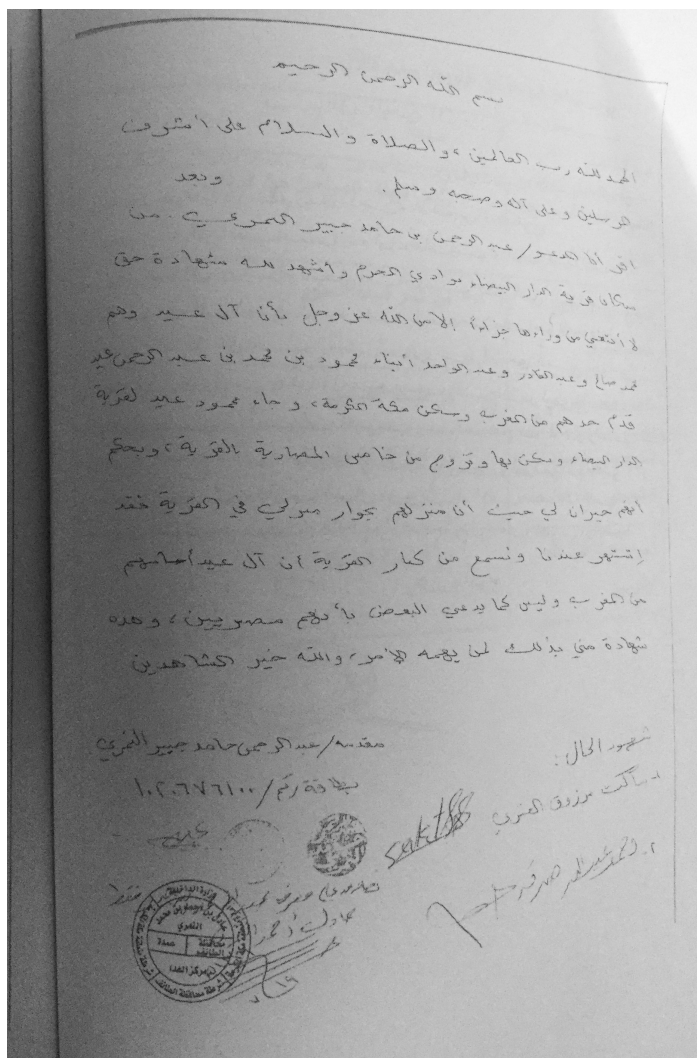 بسم الله الرحمن الرحيم
الحمد لله رب العالمين، والصلاة والسلام على أشرف
المرسلين وعلى آله وصحبه وسلم. وبعد
أقر أنا المدعو/ عبد الرحمن بن حامد جبير النمري. من
سكان قرية الدار البيضاء بوادي المحرم وأشهد لله شهادة حق
لا أبتغي من وراءها جزاءاً إلا من الله عز وجل بأن آل عيد وهم
محمد صالح وعبد القادر وعبد الواحد أبناء محمود بن محمد بن عبد الرحمن عيد
قدم جدهم من المغرب وسكن مكة المكرمة، وجاء محمود عيد لقرية
الدار البيضاء وسكن بها وتزوج من خاصى المصارية بالقرية، وبحكم
أنهم جيران لي حيث أن منزلهم بجوار منزلي في القرية فقد
إشتهر عندنا ونسمع من كبار القرية أن آل عيد أساسهم
من المغرب وليس كما يدعي البعض بأنهم مصريين، وهذه
شهادة مني بذلك لمن يهمه الأمر، والله خير الشاهدين
شهود الحال:
مقدمه/ عبد الرحمن حامد جبير النمري
بطاقة رقم/ ١٠٢٠٦٧٦١٠٠
١. ساكت مرزوق
٢.
وزارة الداخلية
النمري
محافظة الطائف
عمدة
شرطة محافظة الطائف